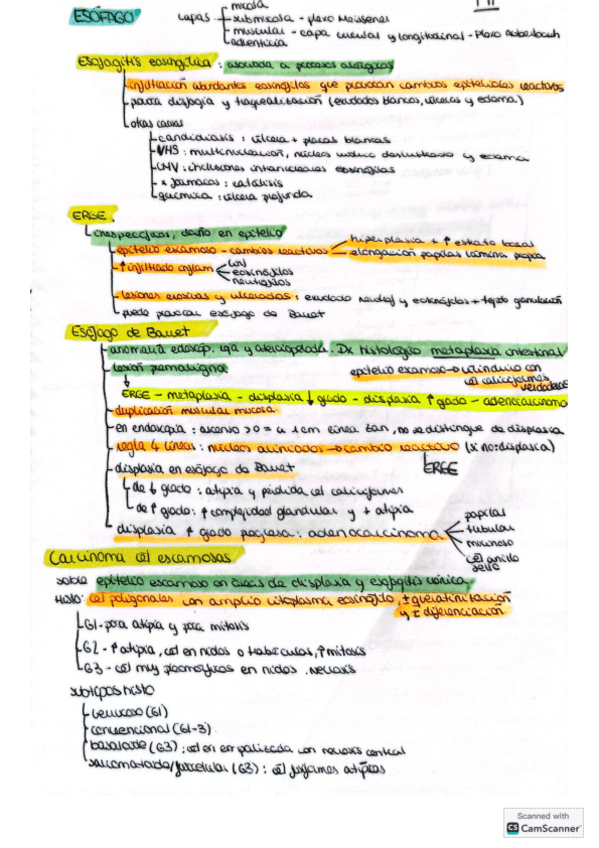 mucosa
ESÓFAGO capas submucosa - plexo Meissner
muscular - capa circular y longitudinal - Plexo Auberbach
adventicia
Esofagitis eosinofílica : asociada a procesos alérgicos
infiltración abundantes eosinófilos que provocan cambios epiteliales reactivos
disfagia y traquealización (exudados blancos, úlceras y edema)
otras causas
candidiasis : úlcera + placas blancas
VHS : multinucleación, núcleo
CMV : inclusiones intranucleares eosinófilas
x fármacos : catálisis
química : úlcera profunda
ERGE
inespecíficos, daño en epitelio
epitelio escamoso - cambios reactivos
hiperplasia + ↑ estrato basal
elongación papilas lámina propia
↑ infiltrado inflam
eosinófilos
neutrófilos
lesiones erosivas y ulceradas : exudado neutrof y eosinófilos + tejido granulación
puede provocar esófago de Barret
Esófago de Barret
anomalía endoscóp. Dx histológico metaplasia intestinal
lesión premaligna
epitelio escamoso → cilíndrico con
cel caliciformes
verdaderas
ERGE - metaplasia - displasia ↓ grado - displasia ↑ grado - adenocarcinoma
duplicación muscular mucosa
en endoscopia : ascenso > o = a 1cm línea, no se distingue de displasia
regla 4 líneas : núcleos alineados → cambio reactivo (si no: displasia)
ERGE
displasia en esófago de Barret
de ↓ grado : atipia y pérdida cel caliciformes
de ↑ grado : ↑ complejidad glandular y + atipia
displasia ↑ grado progresa : adenocarcinoma
papilar
tubular
mucinoso
cel anillo
sello
Carcinoma cel escamosas
sobre epitelio escamoso en áreas de displasia y esofagitis crónica.
Histo: cel poligonales con amplio citoplasma eosinófilo, ± queratinización
y ± diferenciación
G1 - poca atipia y poca mitosis
G2 - ↑ atipia, cel en nidos o trabéculas, ↑ mitosis
G3 - cel muy pleomórficas en nidos. Necrosis
subtipos histo
Verrucoso (G1)
convencional (G1-3)
basaloide (G3) : cel en empalizada con necrosis central
sarcomatoide/fusocelular (G3) : cel fusiformes atípicas
Scanned with
CS CamScanner